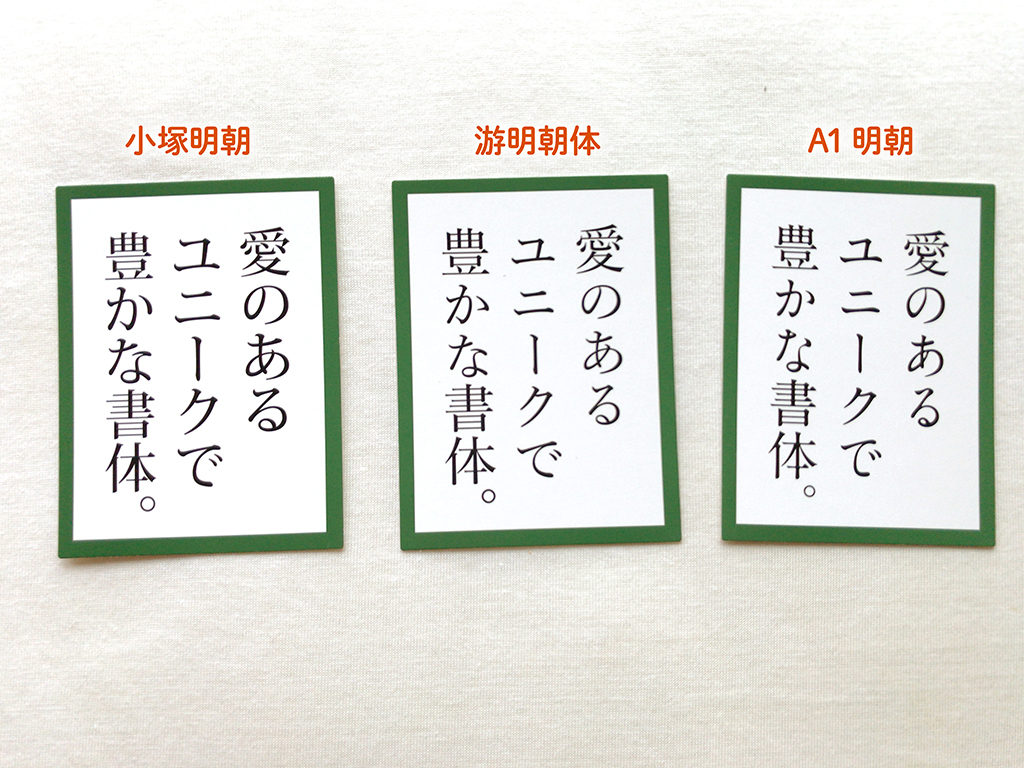 小塚明朝
愛のある
ユニークで
豊かな書体。
游明朝体
愛のある
ユニークで
豊かな書体。
A1 明朝
愛のある
ユニークで
豊かな書体。